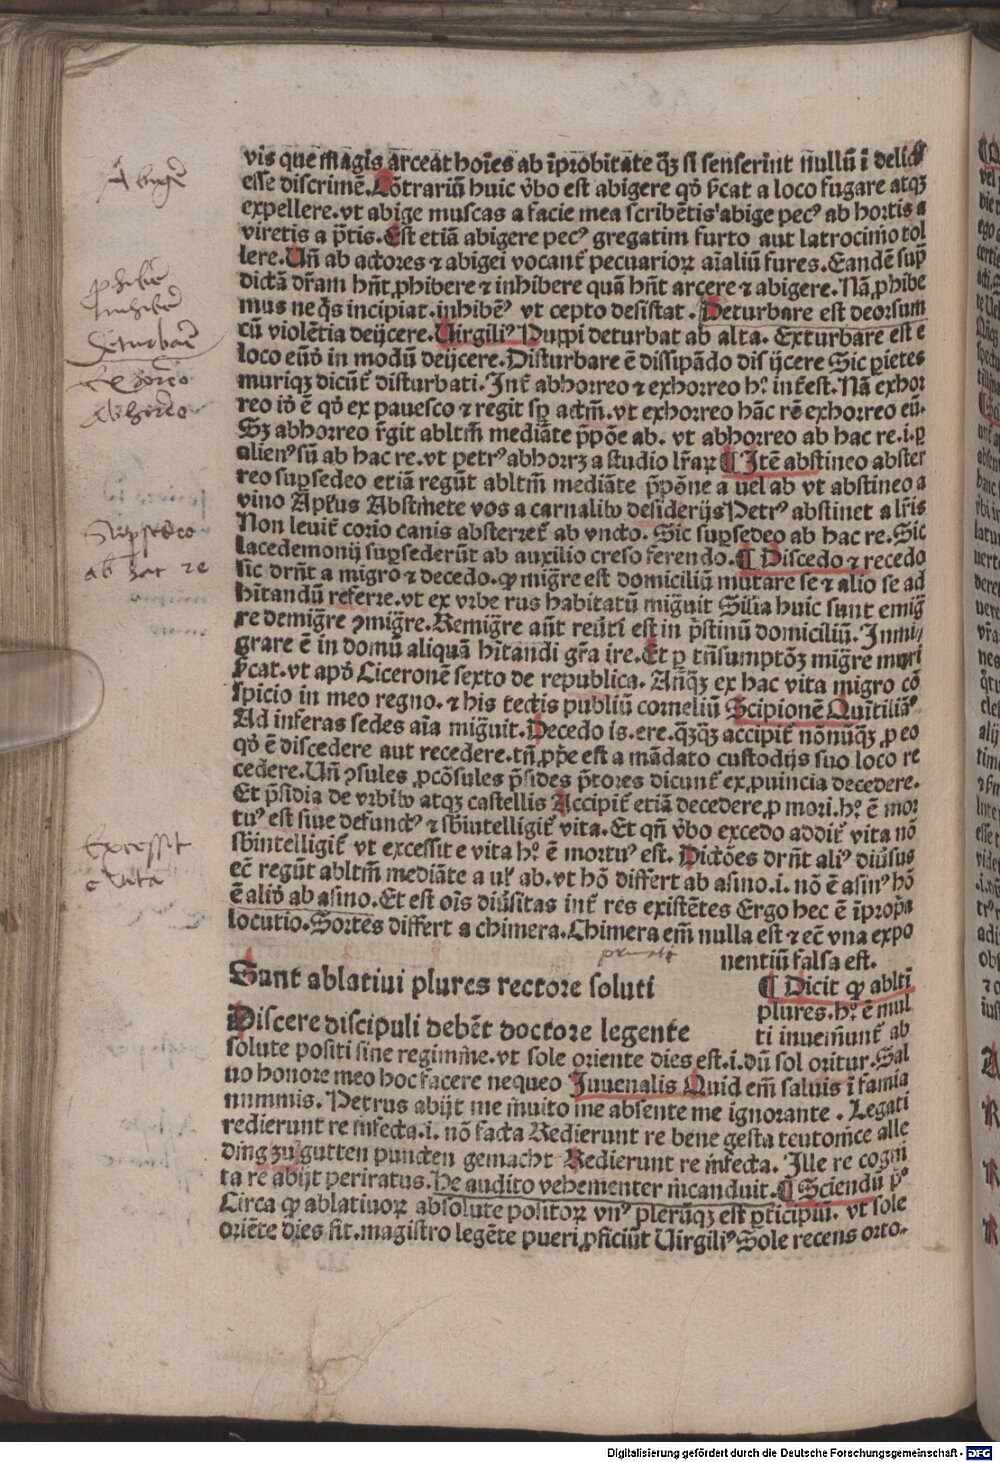 vis que magis arceat hoı̄es ab ı̄probitate q̄ꝫ si senserint nullū ī delicꝭ
esse discrimē. Cōtrariū huic v̄bo est abigere qd̄ s̄cat a loco fugare atqꝫ
expellere. vt abige muscas a facie mea scribētis abige pecꝰ ab hortis a
viretis a p̄tis. Est etiā abigere pecꝰ gregatim furto aut latrocinio tol
lere. Un̄ ab actores ⁊ abigei vocant̄ pecuarioꝝ aı̄aliū fures. Eandē sup̄
dictā dr̄am hn̄t ꝓhibere ⁊ inhibere quā hn̄t arcere ⁊ abigere. Nā ꝓhibe
mus ne q̄s incipiat. inhibēꝰ vt cepto desistat. Deturbare est deorsum
cū violētia deijcere. Uirgiliꝰ Puppi deturbat ab alta. Exturbare est e
loco eūd̄ in modū deijcere. Disturbare ē dissipādo disijcere Sic ꝑietes
muriqꝫ dicūt̄ disturbati. Int̄ abhorreo ⁊ exhorreo hͦ int̄est. Nā exhor
reo id̄ ē qd̄ ex pauesco ⁊ regit sꝑ actm̄. vt exhorreo hāc rē exhorreo eū.
Sꝫ abhorreo r̄git abltm̄ mediāte p̄pōe ab. vt abhorreo ab hac re .i. ꝑ
alienꝰ sū ab hac re. vt petrꝰ abhorrꝫ a studio lr̄aꝝ ¶ Itē abstineo abster
reo suꝑsedeo etiā regūt abltm̄ mediāte p̄pōne a uel ab vt abstineo a
vino Aptͣus Abstinete vos a carnalibꝰ desiderijs Petrꝰ abstinet a lr̄is
Non leuit̄ corio canis absterret̄ ab vncto. Sic suꝑsedeo ab hac re. Sic
lacedemonij suꝑsederūt ab auxilio creso ferendo. ¶ Discedo ⁊ recedo
sic drn̄t a migro ⁊ decedo. ꝙ migr̄e est domiciliū mutare se ⁊ alio se ad
hı̄tandū referre. vt ex vrbe rus habitatū migͣuit Silia huic sunt emigͣ
re demigr̄e ꝯmigr̄e. Remigr̄e aūt reūti est in p̄stinū domiciliū. Inmi/
grare ē in domū aliquā hı̄tandi gr̄a ire. Et ꝑ trn̄sumptōꝫ migr̄e mori
s̄cat. vt apd̄ Ciceronē sexto de republica. An̄q̄ꝫ ex hac vita migro cō
spicio in meo regno. ⁊ his tectis publiū corneliū Scipionē Quintiliāꝰ
Ad inferas sedes aı̄a migͣuit. Decedo is. ere. q̄ꝫq̄ꝫ accipit̄ nōnūq̄ꝫ ꝓ eo
qd̄ ē discedere aut recedere. tn̄ ꝓp̄e est a mādato custodijs suo loco re
cedere. Un̄ ꝯsules ꝓcōsules p̄sides p̄tores dicunt̄ ex ꝓuincia decedere.
Et p̄sidia de vrbibꝰ atqꝫ castellis Accipit̄ etiā decedere ꝓ mori. hͦ ē mor
tuꝰ est siue defunctꝰ ⁊ sbintelligit̄ vita. Et qn̄ v̄bo excedo addit̄ vita nō
sbintelligit̄ vt excessit e vita hͦ ē mortuꝰ est. Dictōes drn̄t aliꝰ diūsus
ec̄ regūt abltm̄ mediāte a ul̄ ab. vt hō differt ab asino .i. nō ē asinꝰ hō
ē aliđ ab asino. Et est oı̄s diūsitas int̄ res existētes Ergo hec ē ı̄propͣa
locutio. Sortes differt a chimera. Chimera em̄ nulla est ⁊ ec̄ vna expo
nentiū falsa est.
Sunt ablatiui plures rectore soluti
Discere discipuli debēt doctore legente
¶ Dicit ꝙ abltı̄
plures. hͦ ē mul
ti inueniunt̄ ab
solute positi sine regimine. vt sole oriente dies est .i. dū sol oritur. Sal
uo honore meo hoc facere nequeo Juuenalis Quid em̄ saluis ī famia
nummis. Petrus abijt me inuito me absente me ignorante. Legati
redierunt re infecta .i. nō facta Redierunt re bene gesta teutonice alle
ding zu gutten puncten gemacht Redierunt re infecta. Ille re cogni
ta re abijt periratus. He audito vehementer incanduit. ¶ Sciendū pͦ
Circa ꝙ ablatiuoꝝ absolute positoꝝ vnꝰ plerūqꝫ est ꝑticipiū. vt sole
oriēte dies fit. magistro legēte pueri ꝓficiūt Uirgiliꝰ Sole recens orto.
Abigere
ꝓhibere
Inhibere
Deturbare
Exhorreo
Abhorreo
Supersedeo
ab hac re
Excessit
e vita
Digitalisierung gefördert durch die Deutsche Forschungsgemeinschaft - DFG